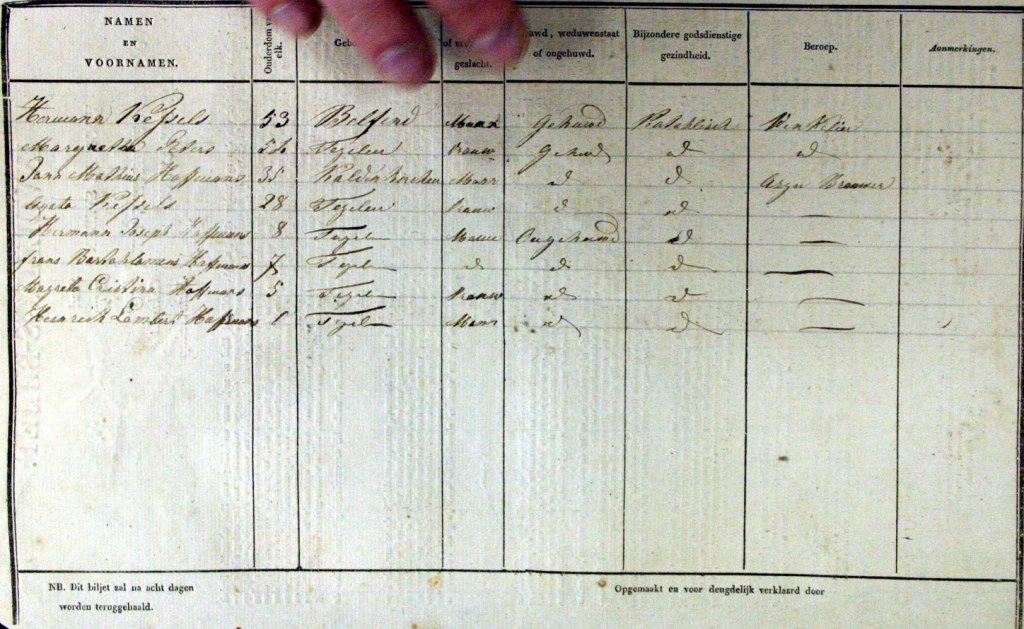 NAMEN EN VOORNAMEN. Ouderdom elk. Geb of geslacht. uwd, weduwenstaat of ongehuwd. Bijzondere godsdienstige gezindheid. Beroep. Aanmerkingen.
Hermann Kefsels 53 Belfend Mann Gehuwd Katholisch Winkelier
Margretha Peters 54 Tegelen Vrauw Gehud d d
Jann Mathius Haffmans 35 Kaldenkerken Mann d d Brouwer
Kefsels 28 Tegelen Vrauw d d —
Hermann Joseph Haffmans 8 Tegel Mann Ongehuwd d —
frans Bartholomeus Haffmans 7 Tegel d d d —
Cristina Haffmans 5 Tegel Vrauw d d —
Heinrich Lambert Haffmans 1 Tegel Mann d d —
NB. Dit biljet zal na acht dagen
worden teruggehaald.
Opgemaakt en voor deugdelijk verklaard door